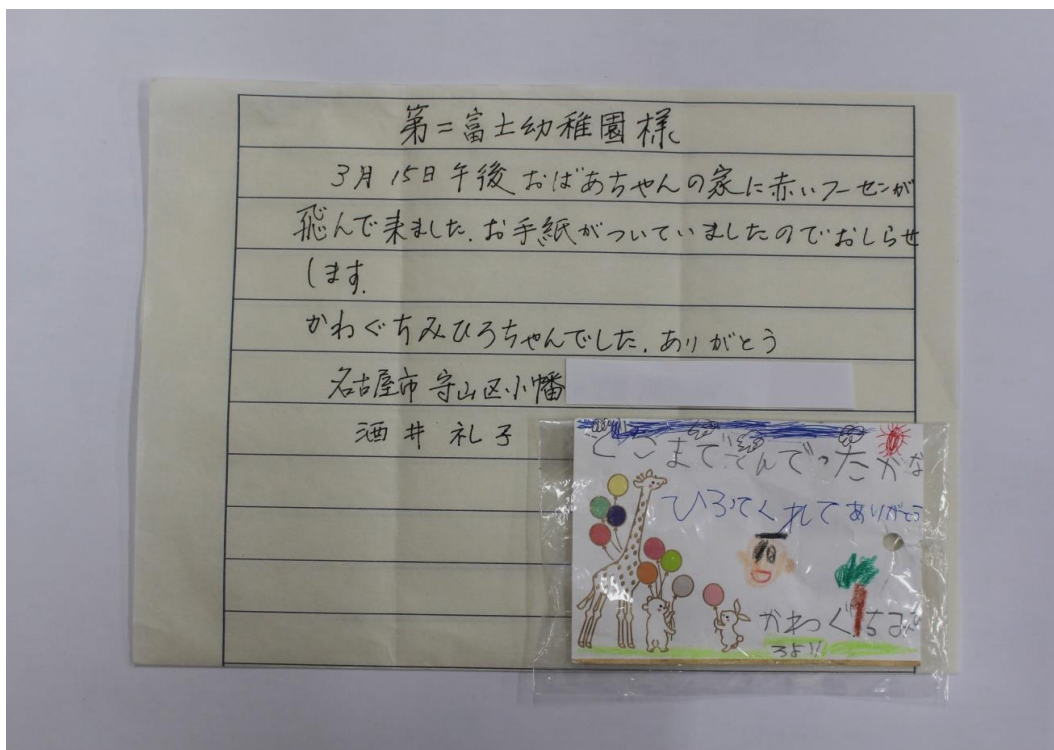 第二富士幼稚園様
3月15日午後おばあちゃんの家に赤いフーセンが
飛んで来ました.お手紙がついていましたのでおしらせ
します.
かわぐちみひろちゃんでした.ありがとう
名古屋市守山区小幡
酒井礼子
どこまでとんでったかな
ひろてくれてありがとう
かわぐちみひ
ろより